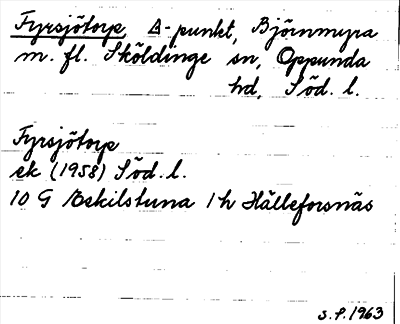 Fyrsjötorp, Δ-punkt, Björnmyra
m. fl. Sköldinge sn, Oppunda
hd, Söd. l.
Fyrsjötorp
ek (1958) Söd. l.
10 G Eskilstuna 1 h Hälleforsnäs
S.P. 1963